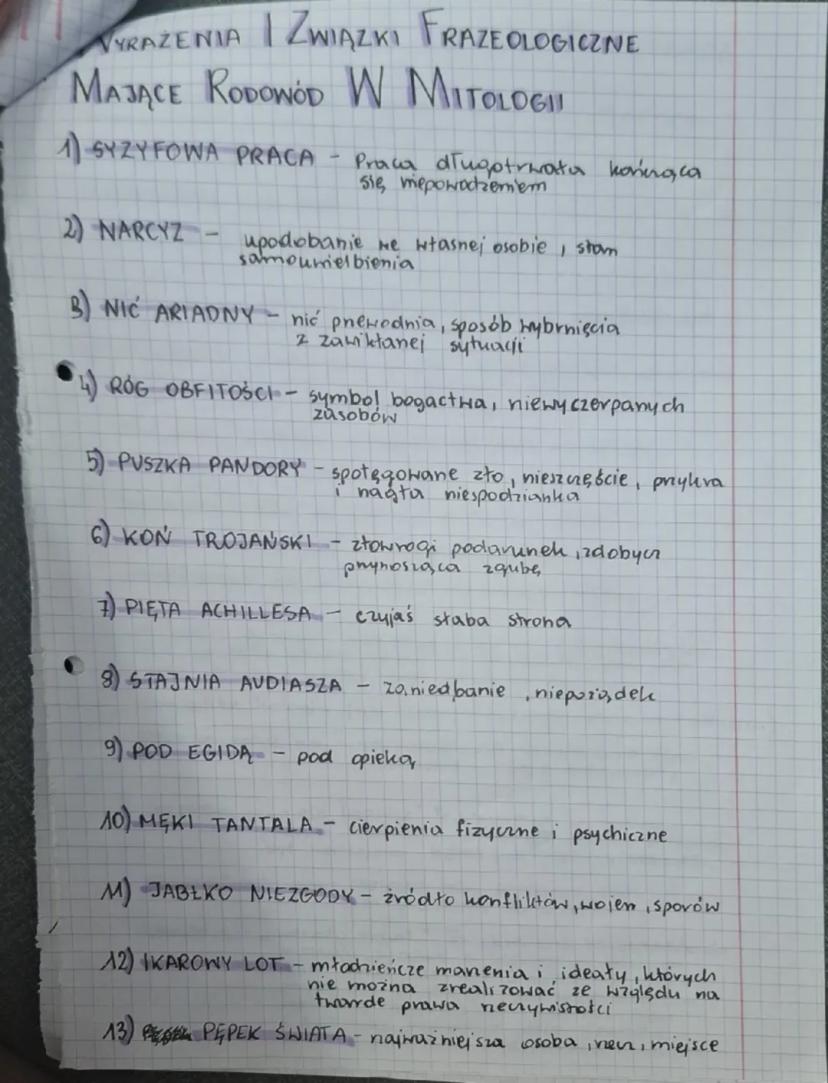 WYRAŻENIA I ZWIĄZKI FRAZEOLOGICZNE
MAJĄCE RODOWÓD W MITOLOGII
1) SYZYFOWA PRACA - Praca długotrwała kończąca
się niepowodzeniem
2) NARCYZ - upodobanie we własnej osobie, stan
samouwielbienia
3) NIĆ ARIADNY - nić przewodnia, sposób wybrnięcia
z zawikłanej sytuacji
4) RÓG OBFITOŚCI - symbol bogactwa, niewyczerpanych
zasobów
5) PUSZKA PANDORY - spotęgowane zło, nieszczęście, przykra
i nagła niespodzianka
6) KOŃ TROJAŃSKI - złowrogi podarunek, zdobycz
przynosząca zgubę
7) PIĘTA ACHILLESA - czyjaś słaba strona
8) STAJNIA AUDIASZA - zaniedbanie, nieporządek
9) POD EGIDĄ - pod opieką
10) MĘKI TANTALA - cierpienia fizyczne i psychiczne
11) JABŁKO NIEZGODY - źródło konfliktów, wojen, sporów
12) IKAROWY LOT - młodzieńcze marzenia i ideały, których
nie można zrealizować ze względu na
twarde prawa rzeczywistości
13) PĘPEK ŚWIATA - najważniejsza osoba, rzecz, miejsce